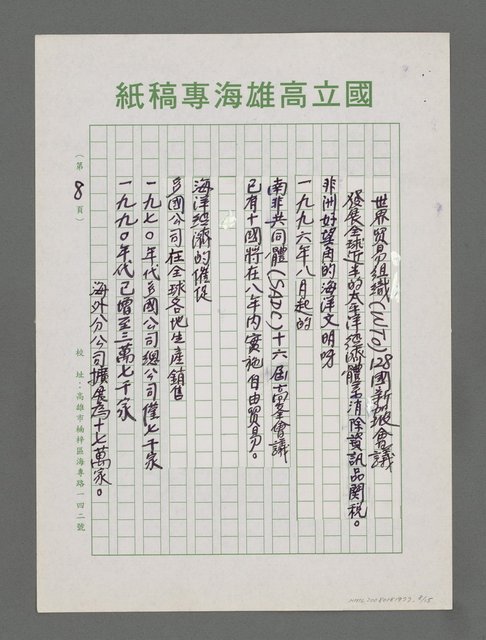 國立高雄海專稿紙
世界貿易組織(WTO)128國新報會議
發展全球近半的太平洋經濟體系消除資訊品關稅。
非洲好望角的海洋文明呀
一九九六年八月起的
南非共同體(SADC)十六屆高峯會議
已有十國將在八年內實施自由貿易。
海洋經濟的催促
多國公司在全球各地生產銷售
一九七〇年代多國公司總公司僅七千家
一九九〇年代已增至三萬七千家
海外分公司擴展為十七萬家。
(第8頁)
校址:高雄市楠梓區海專路一四二號